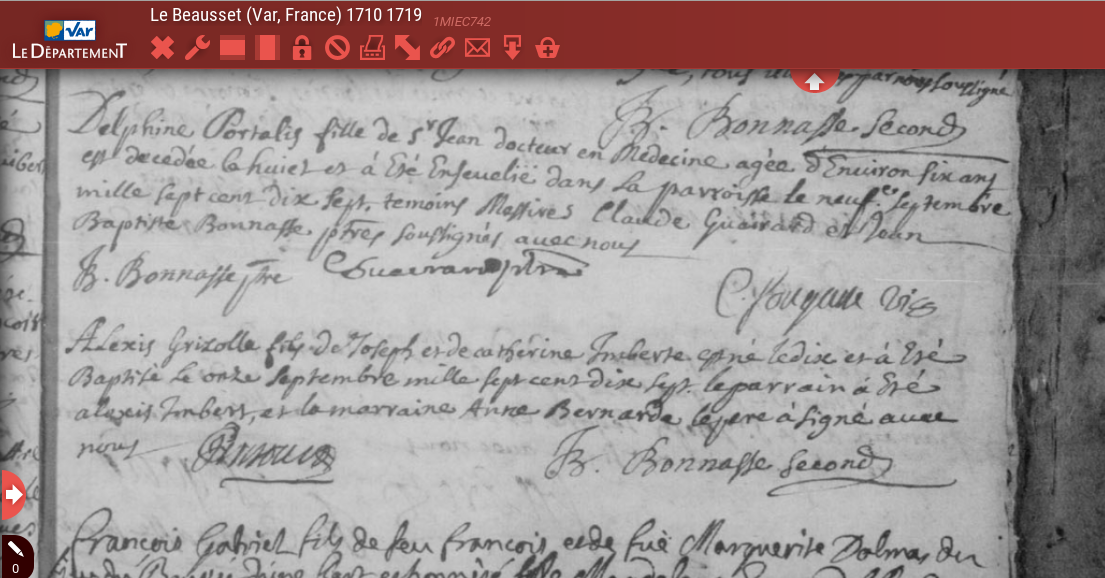 Le Beausset (Var, France) 1710 1719 1MIEC742
VAR
LE DÉPARTEMENT
par nous soussigné
JB. Bonnasse Second
Delphine Portalis fille de Sr Jean docteur en Medecine agée d'Environ six ans
est decedée le huict et à Eté Ensevelie dans la parroisse le neuf.e septembre
mille sept cent dix sept, temoins Messires Claude Guairard et Jean
Baptiste Bonnasse ptres soussignés avec nous
JB. Bonnasse ptre Guairard ptre
Vic
Alexis Grizolle fils de Joseph et de catherine Imberte est né le dix et à Eté
Baptisé le onze septembre mille sept cent dix sept. le parrain à Eté
alexis Imbert, et la marraine Anne Bernarde le pere à signé avec
nous
JB. Bonnasse Second
francois Gabriel fils de feu francois et de fuë Marguerite Dolmas du
0